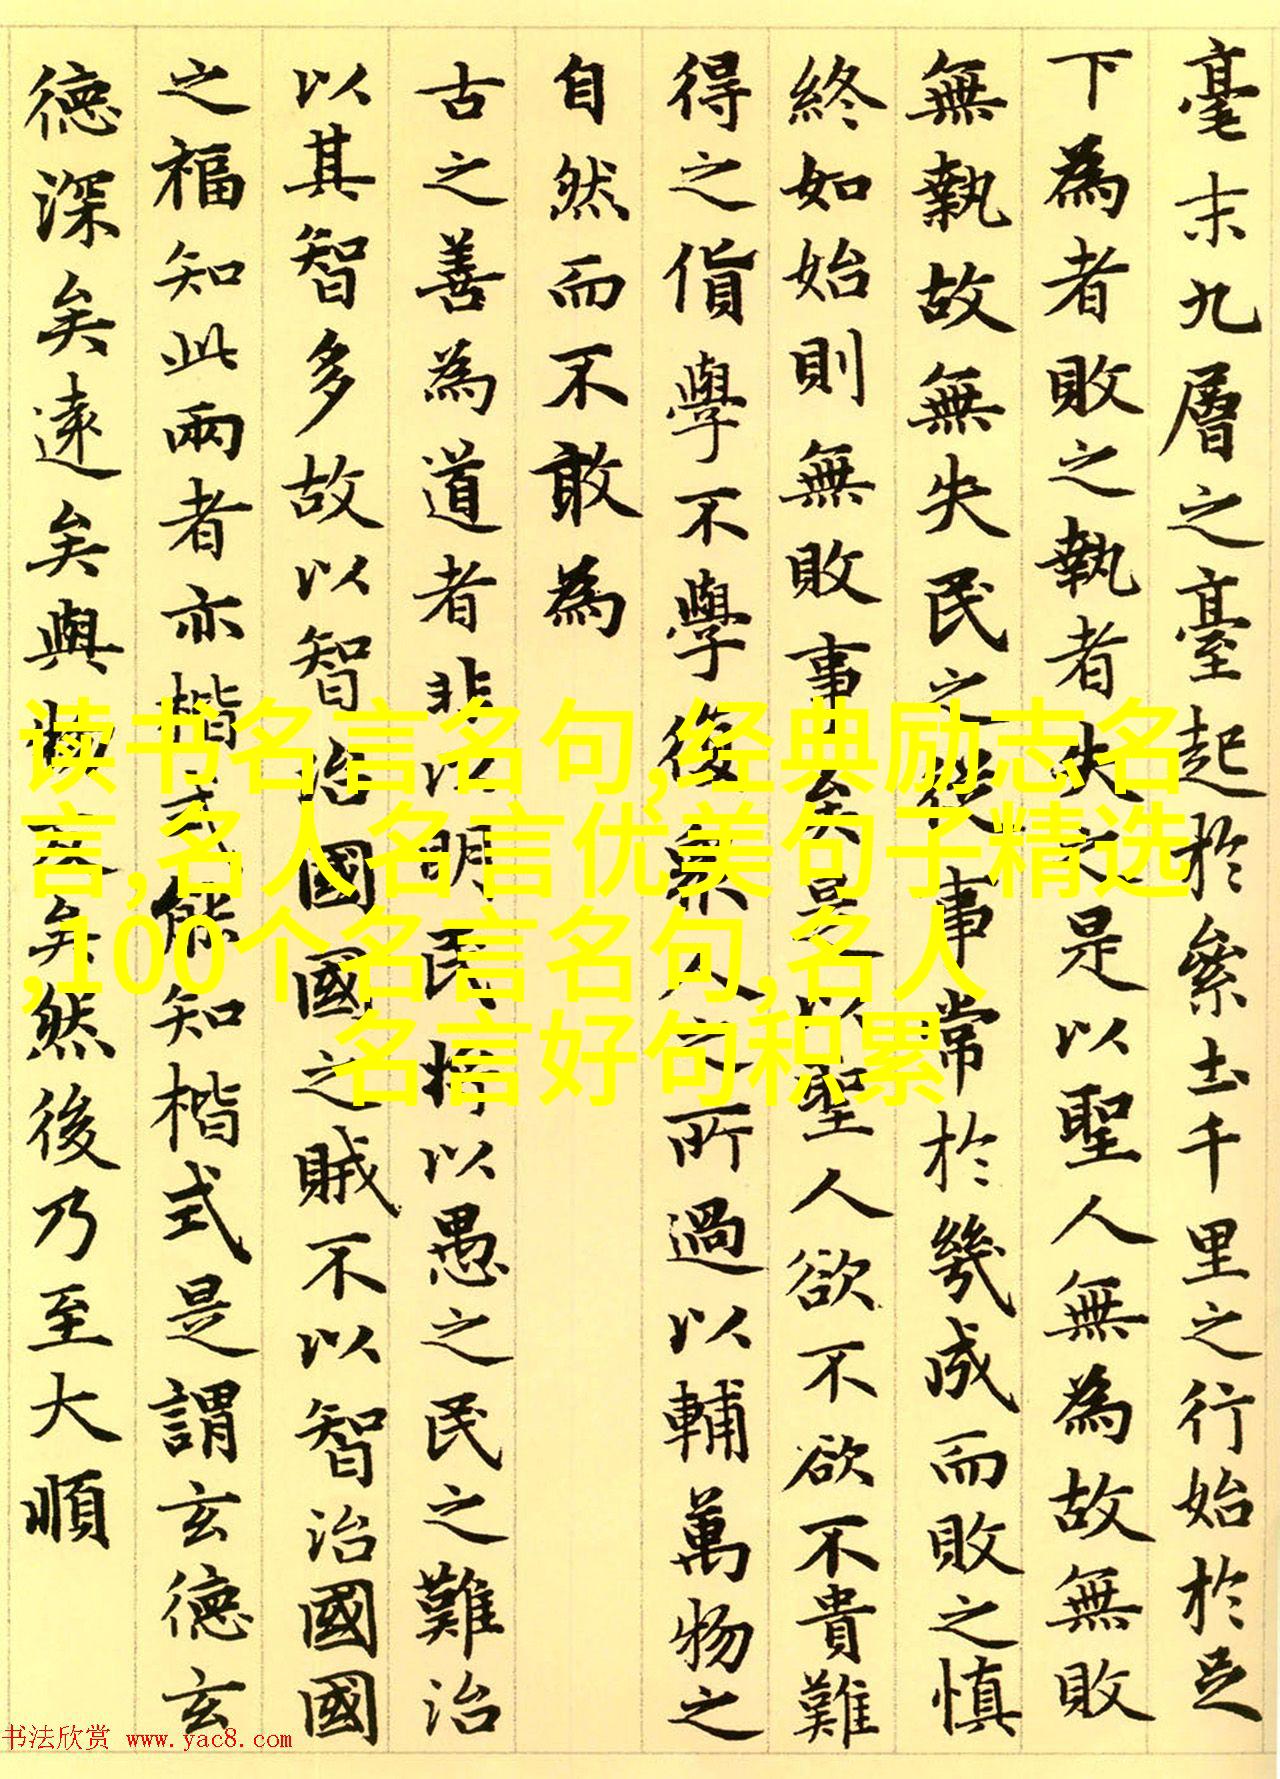 毫末九層之臺起於絫土千里之行始於足
下為者敗之執者失之是以聖人無為故無敗
無執故無失民之從事常於幾成而敗之慎
終如始則無敗事矣是以聖人欲不欲不貴難
得之貨學不學復眾人之所過以輔萬物之
自然而不敢為
古之善為道者非以明民將以愚之民之難治
以其智多故以智治國國之賊不以智治國國
之福知此兩者亦楷式能知楷式是謂玄德玄
德深矣遠矣與物反矣然後乃至大順
读书名言名句,经典励志名
言,名人名言优美句子精选
,100个名言名句,名人
名言好句积累
书法欣赏 www.yac8.com